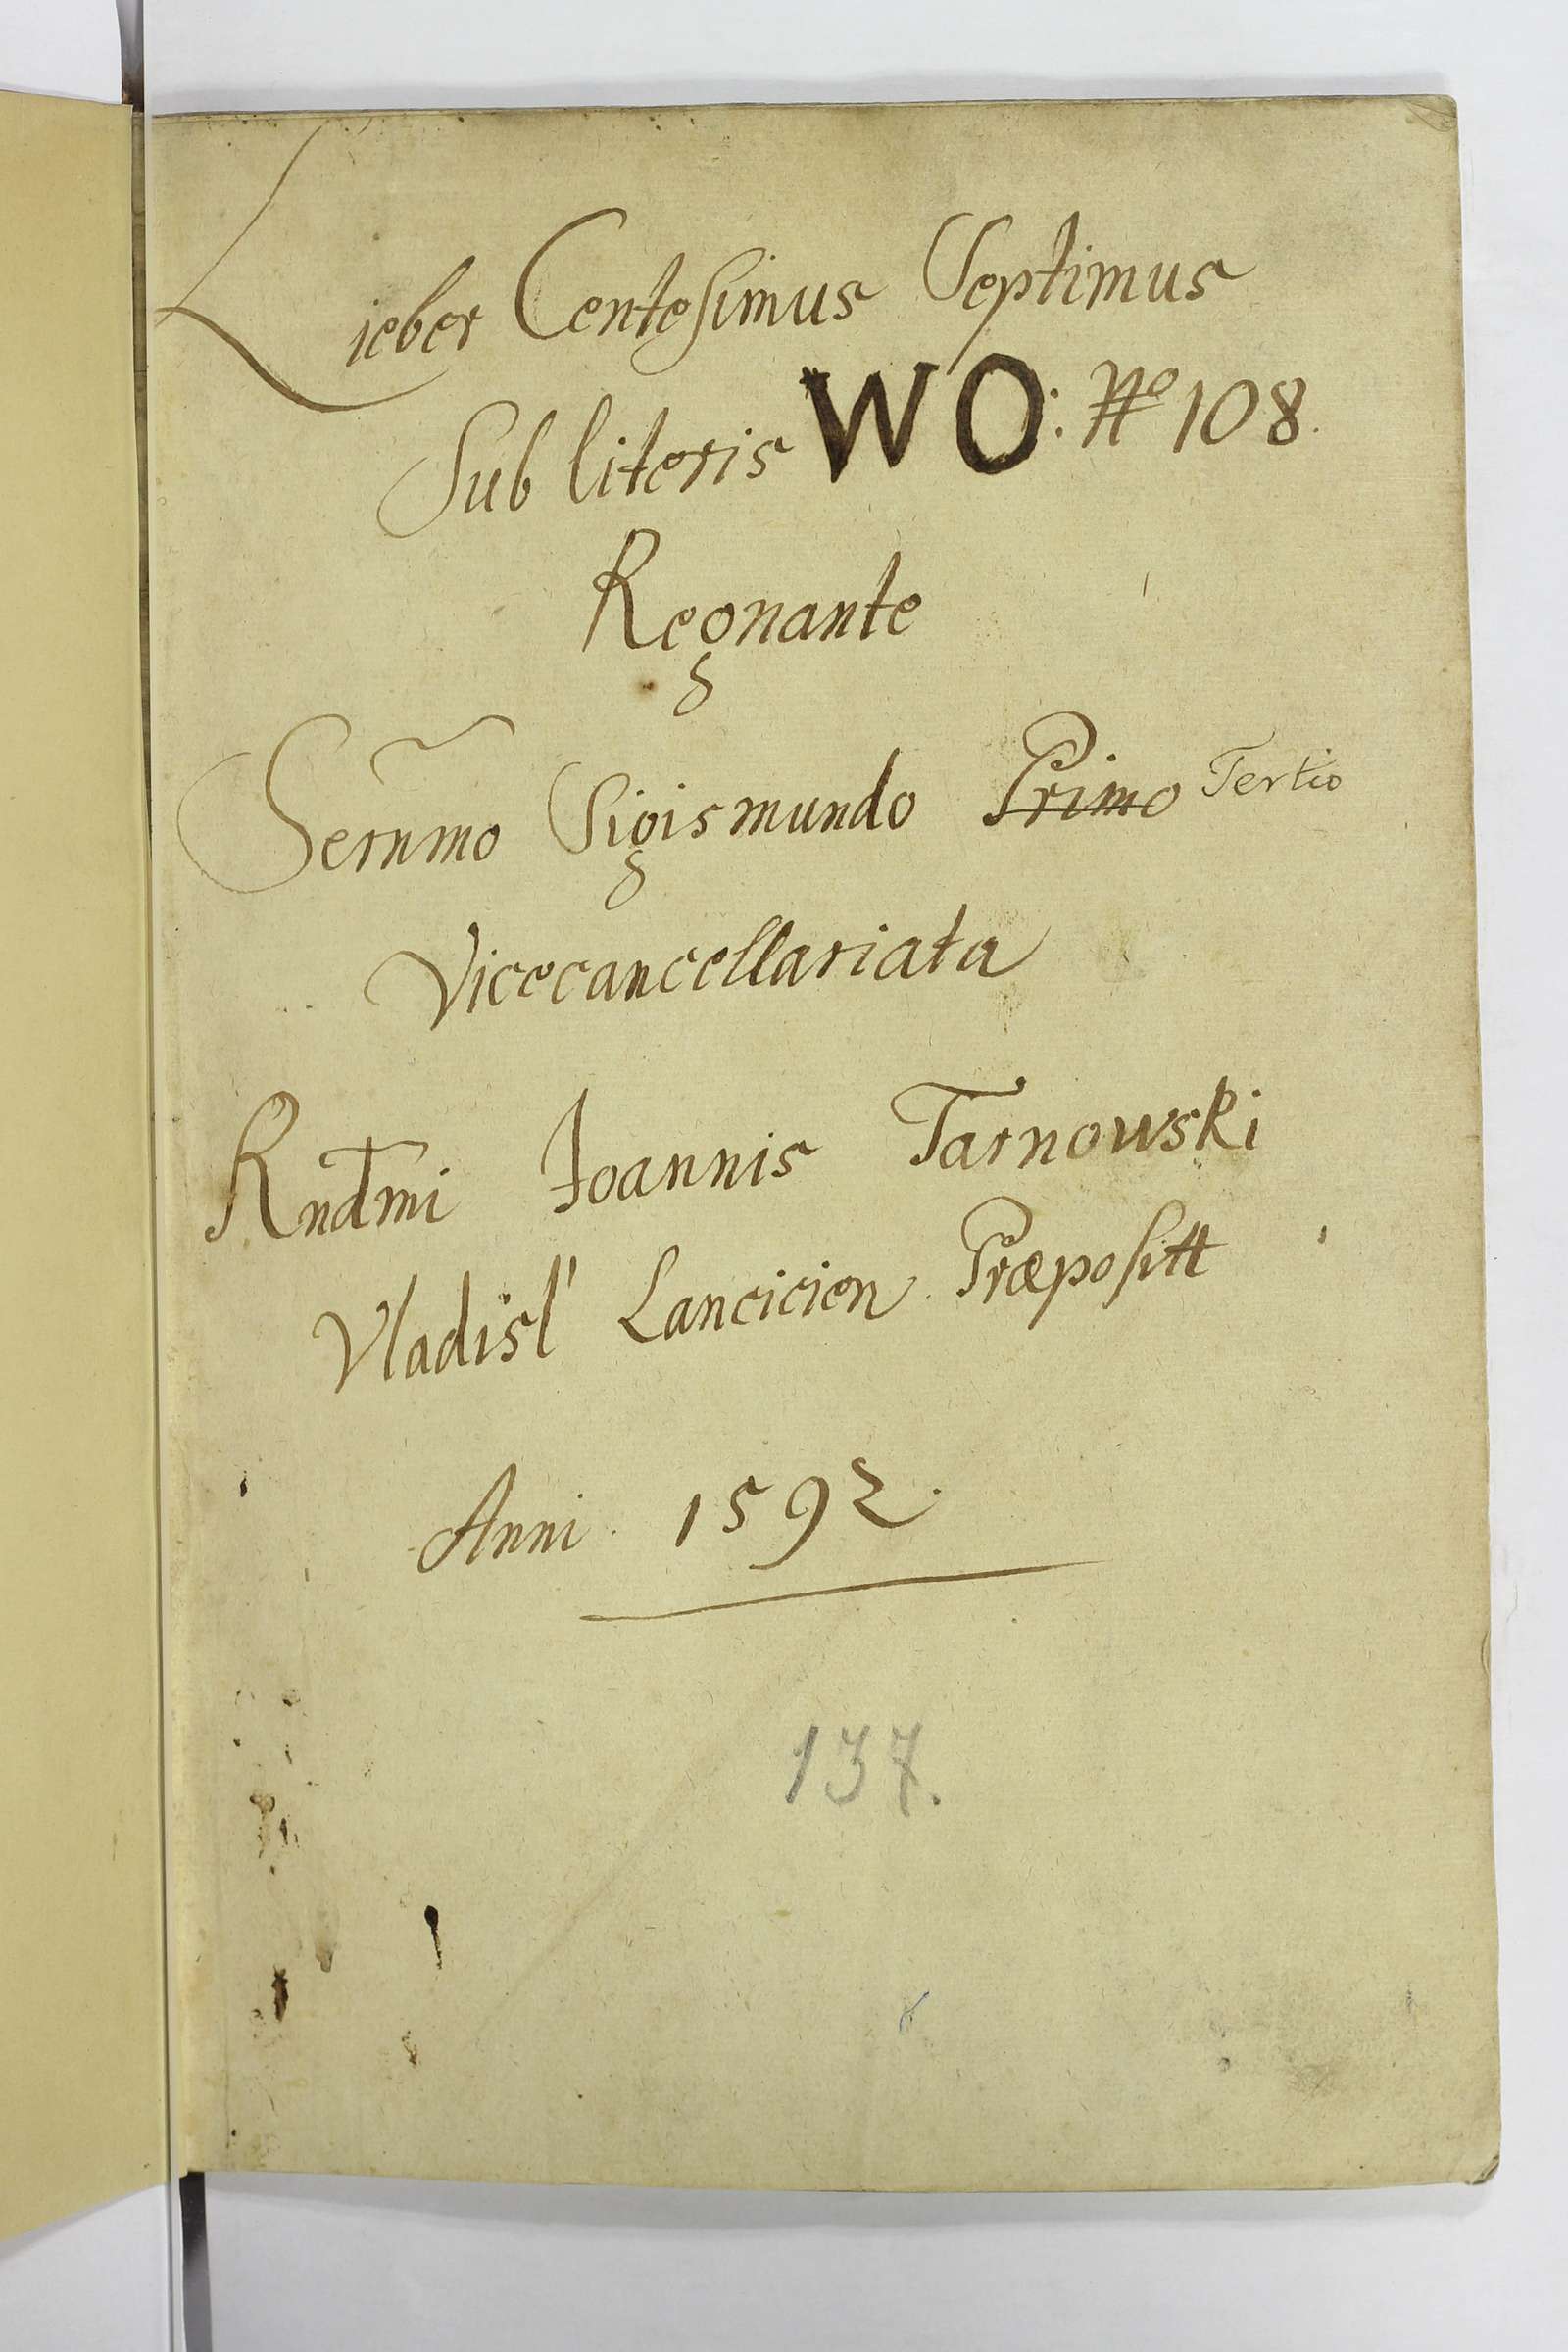 Lieber Centesimus Septimus
Sub literis WO: No 108.
Regnante
Serñmo Sigismundo Primo Tertio
Vicecancellariata
Rndmi Joannis Tarnowski
Vladisl' Lancicien Præpositt
Anni 1592.
137.